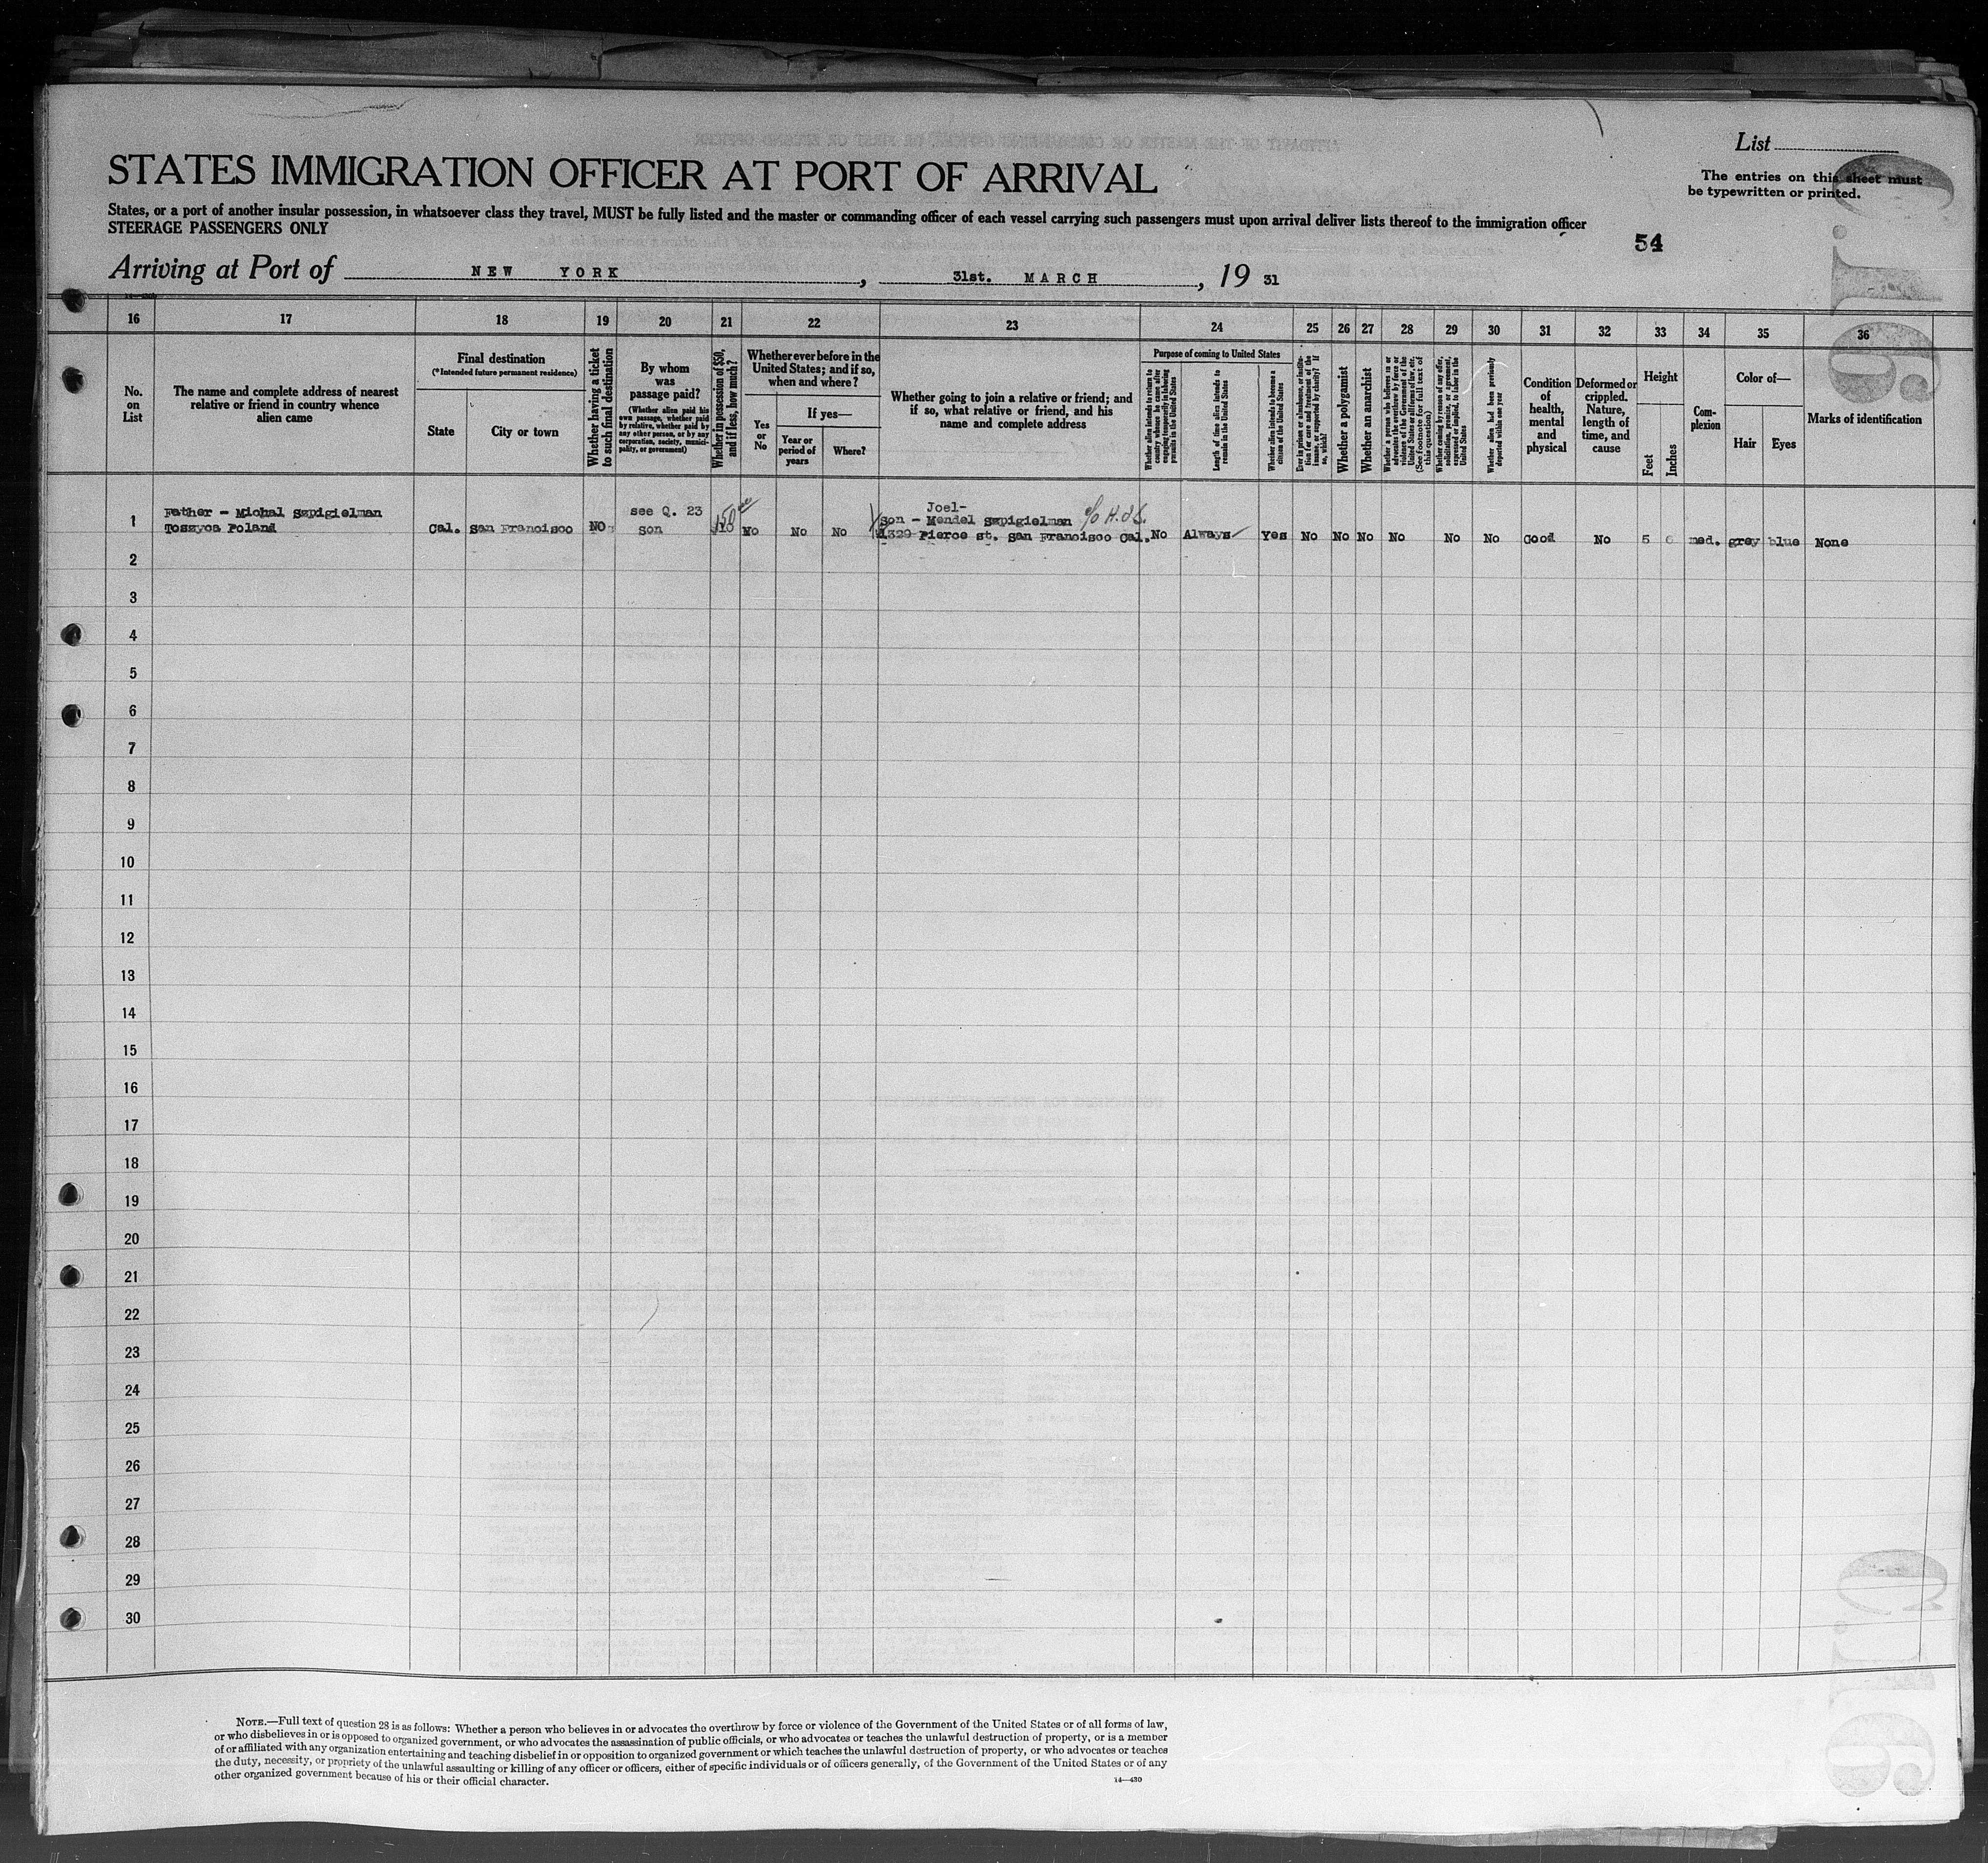 List
STATES IMMIGRATION OFFICER AT PORT OF ARRIVAL
The entries on this sheet must
be typewritten or printed.
States, or a port of another insular possession, in whatsoever class they travel, MUST be fully listed and the master or commanding officer of each vessel carrying such passengers must upon arrival deliver lists thereof to the immigration officer
STEERAGE PASSENGERS ONLY
54
Arriving at Port of NEW YORK, 31st. MARCH, 19 31
16 17 18 19 20 21 22 23 24 25 26 27 28 29 30 31 32 33 34 35 36
No. on List
The name and complete address of nearest
relative or friend in country whence
alien came
Final destination
(*Intended future permanent residence)
State
City or town
Whether having a ticket
to such final destination
By whom
was
passage paid?
(Whether alien paid his
own passage, whether paid
by relative, whether paid by
any other person, or by any
corporation, society, munici-
pality, or government)
Whether in possession of $50,
and if less, how much?
Whether ever before in the
United States; and if so,
when and where?
Yes
or
No
If yes—
Year or
period of
years
Where?
Whether going to join a relative or friend; and
if so, what relative or friend, and his
name and complete address
Purpose of coming to United States
Whether alien intends to return to
country whence he came after
engaging temporarily in laboring
pursuits in the United States
Length of time alien intends to
remain in the United States
Whether alien intends to become a
citizen of the United States
Ever in prison or almshouse, or institu-
tion for care and treatment of the
insane, or supported by charity? If
so, which?
Whether a polygamist
Whether an anarchist
Whether a person who believes in or
advocates the overthrow by force or
violence of the Government of the
United States or all forms of law, etc.
(See footnote for full text of
this question)
Whether coming by reason of any offer,
solicitation, promise, or agreement,
expressed or implied, to labor in the
United States
Whether alien had been previously
deported within one year
Condition
of
health,
mental
and
physical
Deformed or
crippled.
Nature,
length of
time, and
cause
Height
Feet
Inches
Com-
plexion
Color of—
Hair
Eyes
Marks of identification
1
Father - Michal Szpigielman
Toszyca Poland
Cal.
San Francisco
NO
see Q. 23
son
No
No
No
Joel-
Son - Mendel Szpigielman
1329 Pierce st. San Francisco Cal.
No
Always
Yes
No
No
No
No
No
No
Good
No
5
6
med.
grey
blue
None
2
3
4
5
6
7
8
9
10
11
12
13
14
15
16
17
18
19
20
21
22
23
24
25
26
27
28
29
30
NOTE.—Full text of question 28 is as follows: Whether a person who believes in or advocates the overthrow by force or violence of the Government of the United States or of all forms of law,
or who disbelieves in or is opposed to organized government, or who advocates the assassination of public officials, or who advocates or teaches the unlawful destruction of property, or is a member
of or affiliated with any organization entertaining and teaching disbelief in or opposition to organized government or which teaches the unlawful destruction of property, or who advocates or teaches
the duty, necessity, or propriety of the unlawful assaulting or killing of any officer or officers, either of specific individuals or of officers generally, of the Government of the United States or of any
other organized government because of his or their official character.
14—430